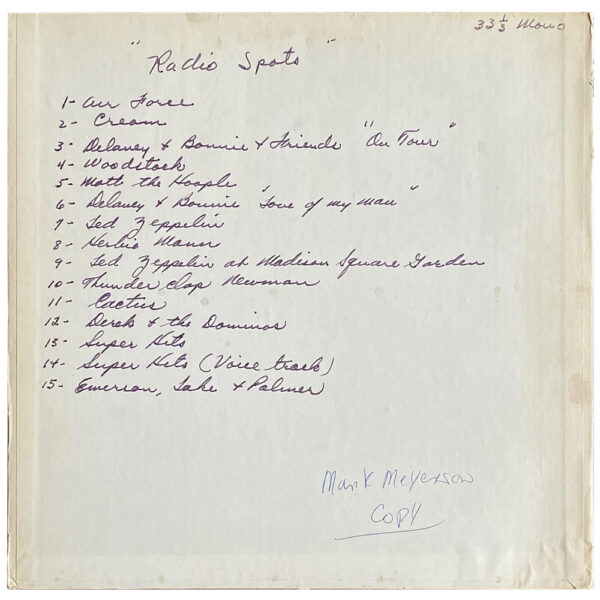 33 1/3 Mono
"Radio Spots"
1- Air Force
2- Cream
3- Delaney & Bonnie & Friends "On Tour"
4- Woodstock
5- Mott the Hoople
6- Delaney & Bonnie "Love of my man"
7- Led Zeppelin
8- Herbie Mann
9- Led Zeppelin at Madison Square Garden
10- Thunder clap Newman
11- Cactus
12- Derek & the Dominos
13- Super Hits
14- Super Hits (Voice track)
15- Emerson, Lake & Palmer
Mark Meyerson
Copy